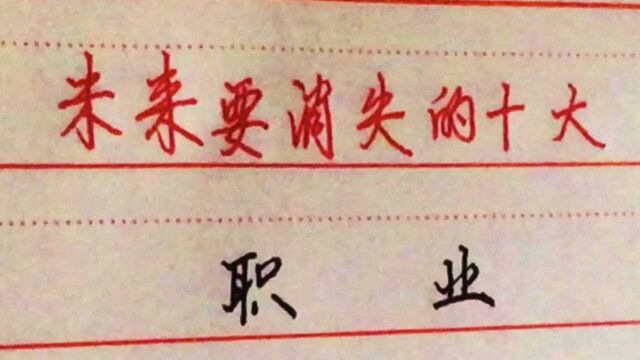 未来要消失的十大
职业